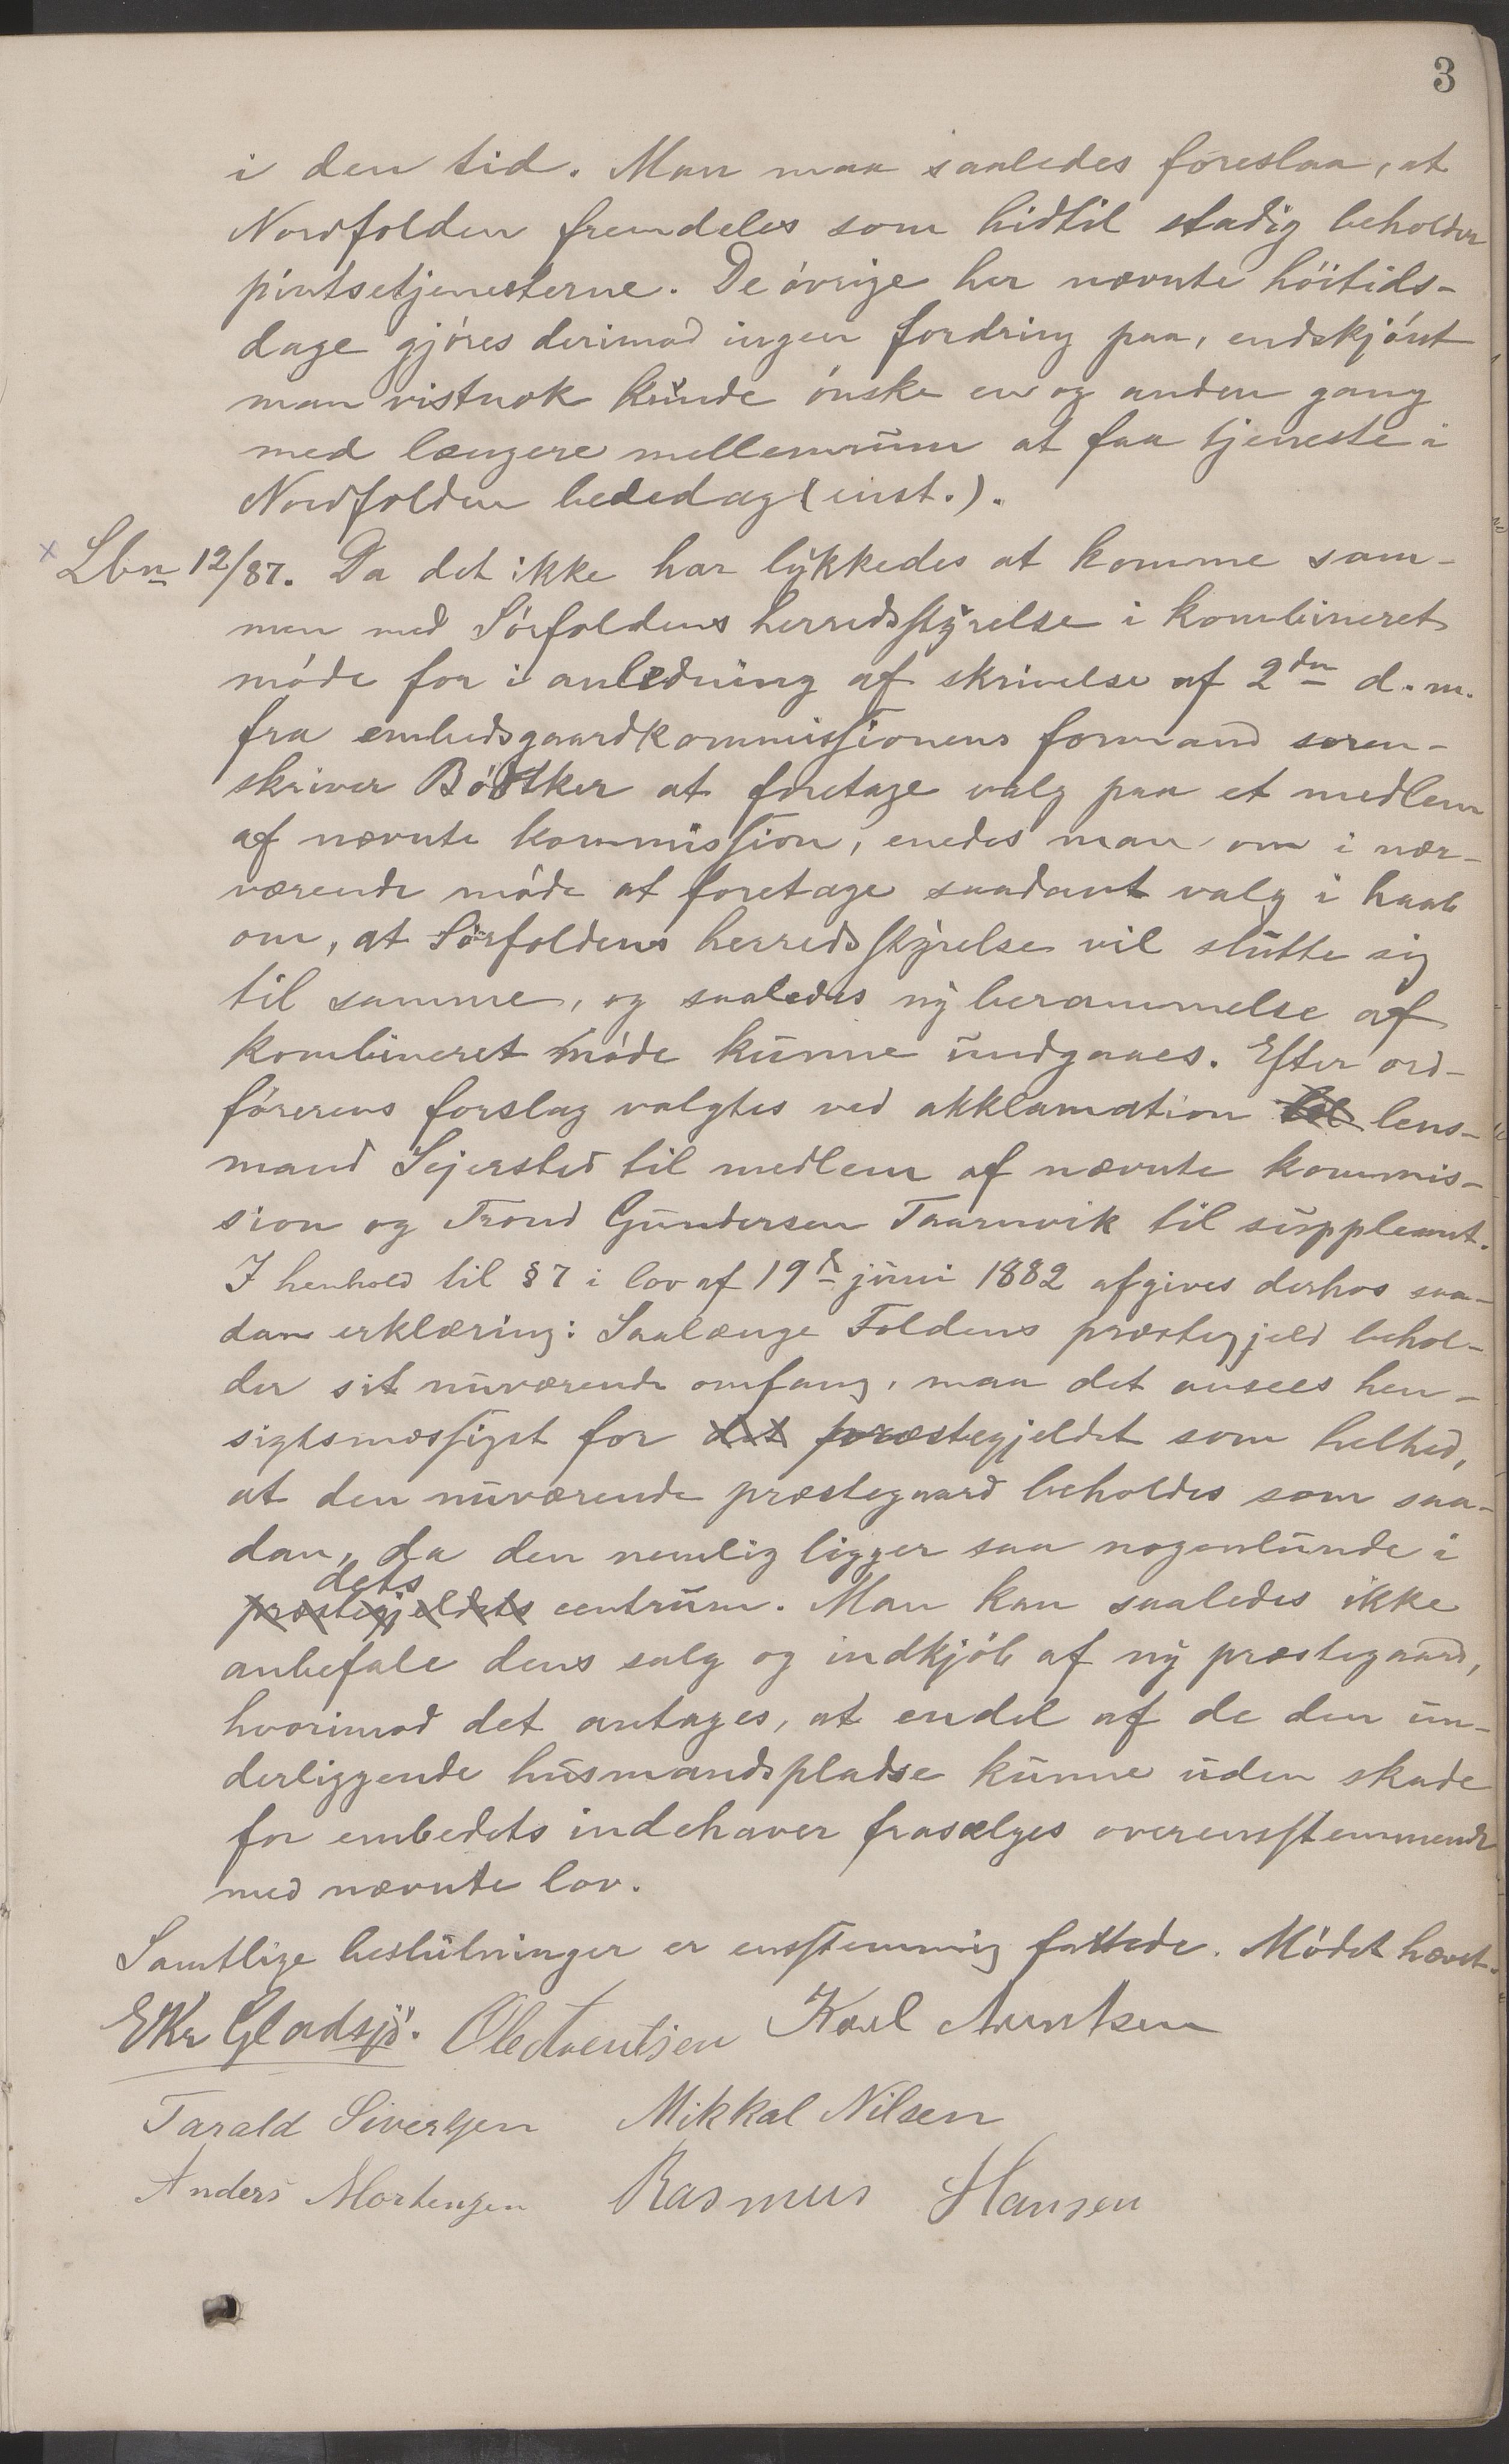 3
i den tid. Man maa saaledes foreslaa, at
Nordfolden fremdeles som hidtil stadig beholder
pintsetjenesterne. De óvrige her nævnte hóitids-
dage gjóres derimod ingen fordring paa, endskjónt
man vistnok kunde ónske en og anden gang
med længere mellemrum at faa tjeneste i
Nordfolden bededag (inst.).
x Lbn 12/87. Da det ikke har lykkedes at komme sam-
men med Sórfoldens herredsstyrelse i kombineret
móde for i anledning af skrivelse af 2den d.m.
fra embedsgaardkommissionens formand soren-
skriver Bódtker at foretage valg paa et medlem
af nævnte kommission, enedes man om i nær-
værende móde at foretage saadant valg i haab
om, at Sórfoldens herredsstyrelse vil slutte sig
til samme, og saaledes ny berammelse af
kombineret móde kunne undgaaes. Efter ord-
fórerens forslag valgtes ved akklamation til lens-
mand Sejersted til medlem af nævnte kommis-
sion og Trond Gundersen Taarnvik til suppleant.
I henhold til §7 i lov af 19de juni 1882 afgives derhos saa-
dan erklæring: Saalænge Foldens præstegjeld behol-
der sit nuværende omfang, maa det ansees hen-
sigtsmæssigst for det præstegjeldet som helhed,
at den nuværende præstegaard beholdes som saa-
dan, da den nemlig ligger saa nogenlunde i
dets
præstegjeldets centrum. Man kan saaledes ikke
anbefale dens salg og indkjób af ny præstegaard,
hvorimod det antages, at endel af de den un-
derliggende husmandspladse kunne uden skade
for embedets indehaver frasælges overensstemmende
med nævnte lov.
Samtlige beslutninger er enstemmig fattede. Módet hævet.
EKr Gladsjó. Ole Arentsen Karl Arntsen
Tarald Sivertsen Mikkal Nilsen
Anders Mortensen Rasmus Hansen